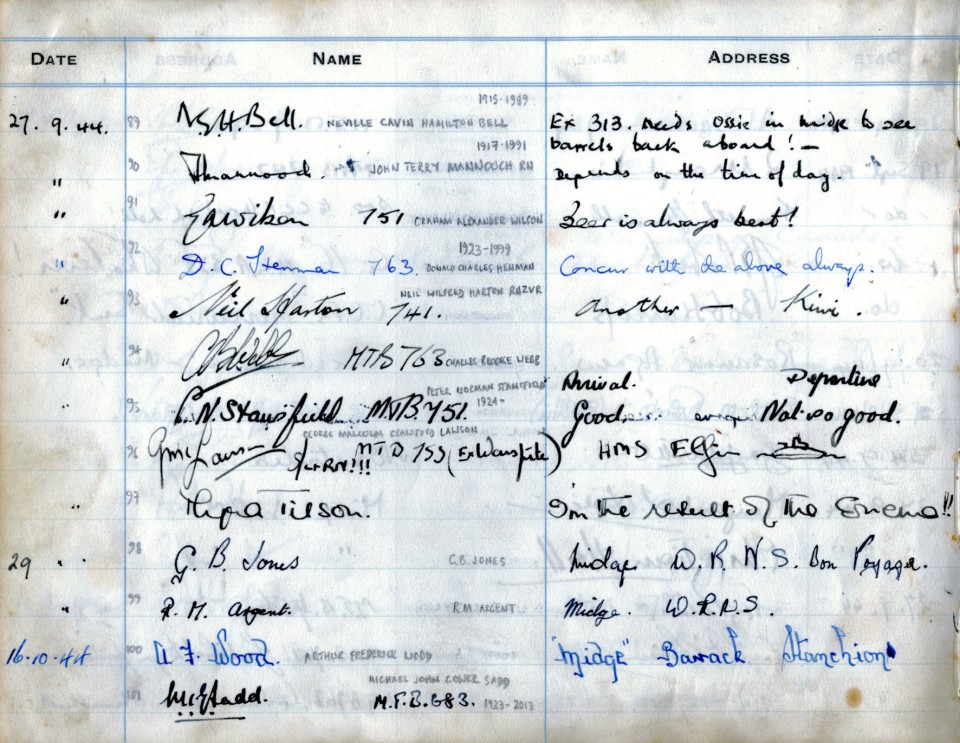 DATE NAME ADDRESS
1915-1989
27. 9. 44. 89 N.G.H. Bell. NEVILLE GAVIN HAMILTON BELL Ex 313. needs Ossie in midge to see
barrels back aboard! —
1917-1991
" 90 JOHN TERRY MANNOOCH RN Depends on the time of day.
" 91 751 GRAHAM ALEXANDER WILSON Beer is always best!
1923-1999
" 92 D. C. Henman 763. DONALD CHARLES HENMAN Concur with the above always.
NEIL WILFRED HARTON RNZVR
" 93 Neil Harton 741. Another — Kiwi.
" 94 MTB 763 CHARLES BROOKE WEBB
PETER NORMAN STANSFIELD Arrival. Departure
1924-
" 95 P. N. Stansfield. MTB. 751. Good average Not so good.
GEORGE MALCOLM LAWSON
MTB 753 (Ex Warspite) HMS Elfin
S/Lt RN!!!
" 97 Myra Tilson. I'm the result of the Enema!!
29 " 98 G. B. Jones G.B. JONES Midge W. R. N. S. Bon Voyage.
" 99 R. M. Argent. R.M. ARGENT Midge. W.R.N.S.
16.10.44 100 A F Wood. ARTHUR FREDERICK WOOD "Midge" Barrack Stanchion
MICHAEL JOHN GOWER SADD
101 M.T.B. 683. 1923-2013